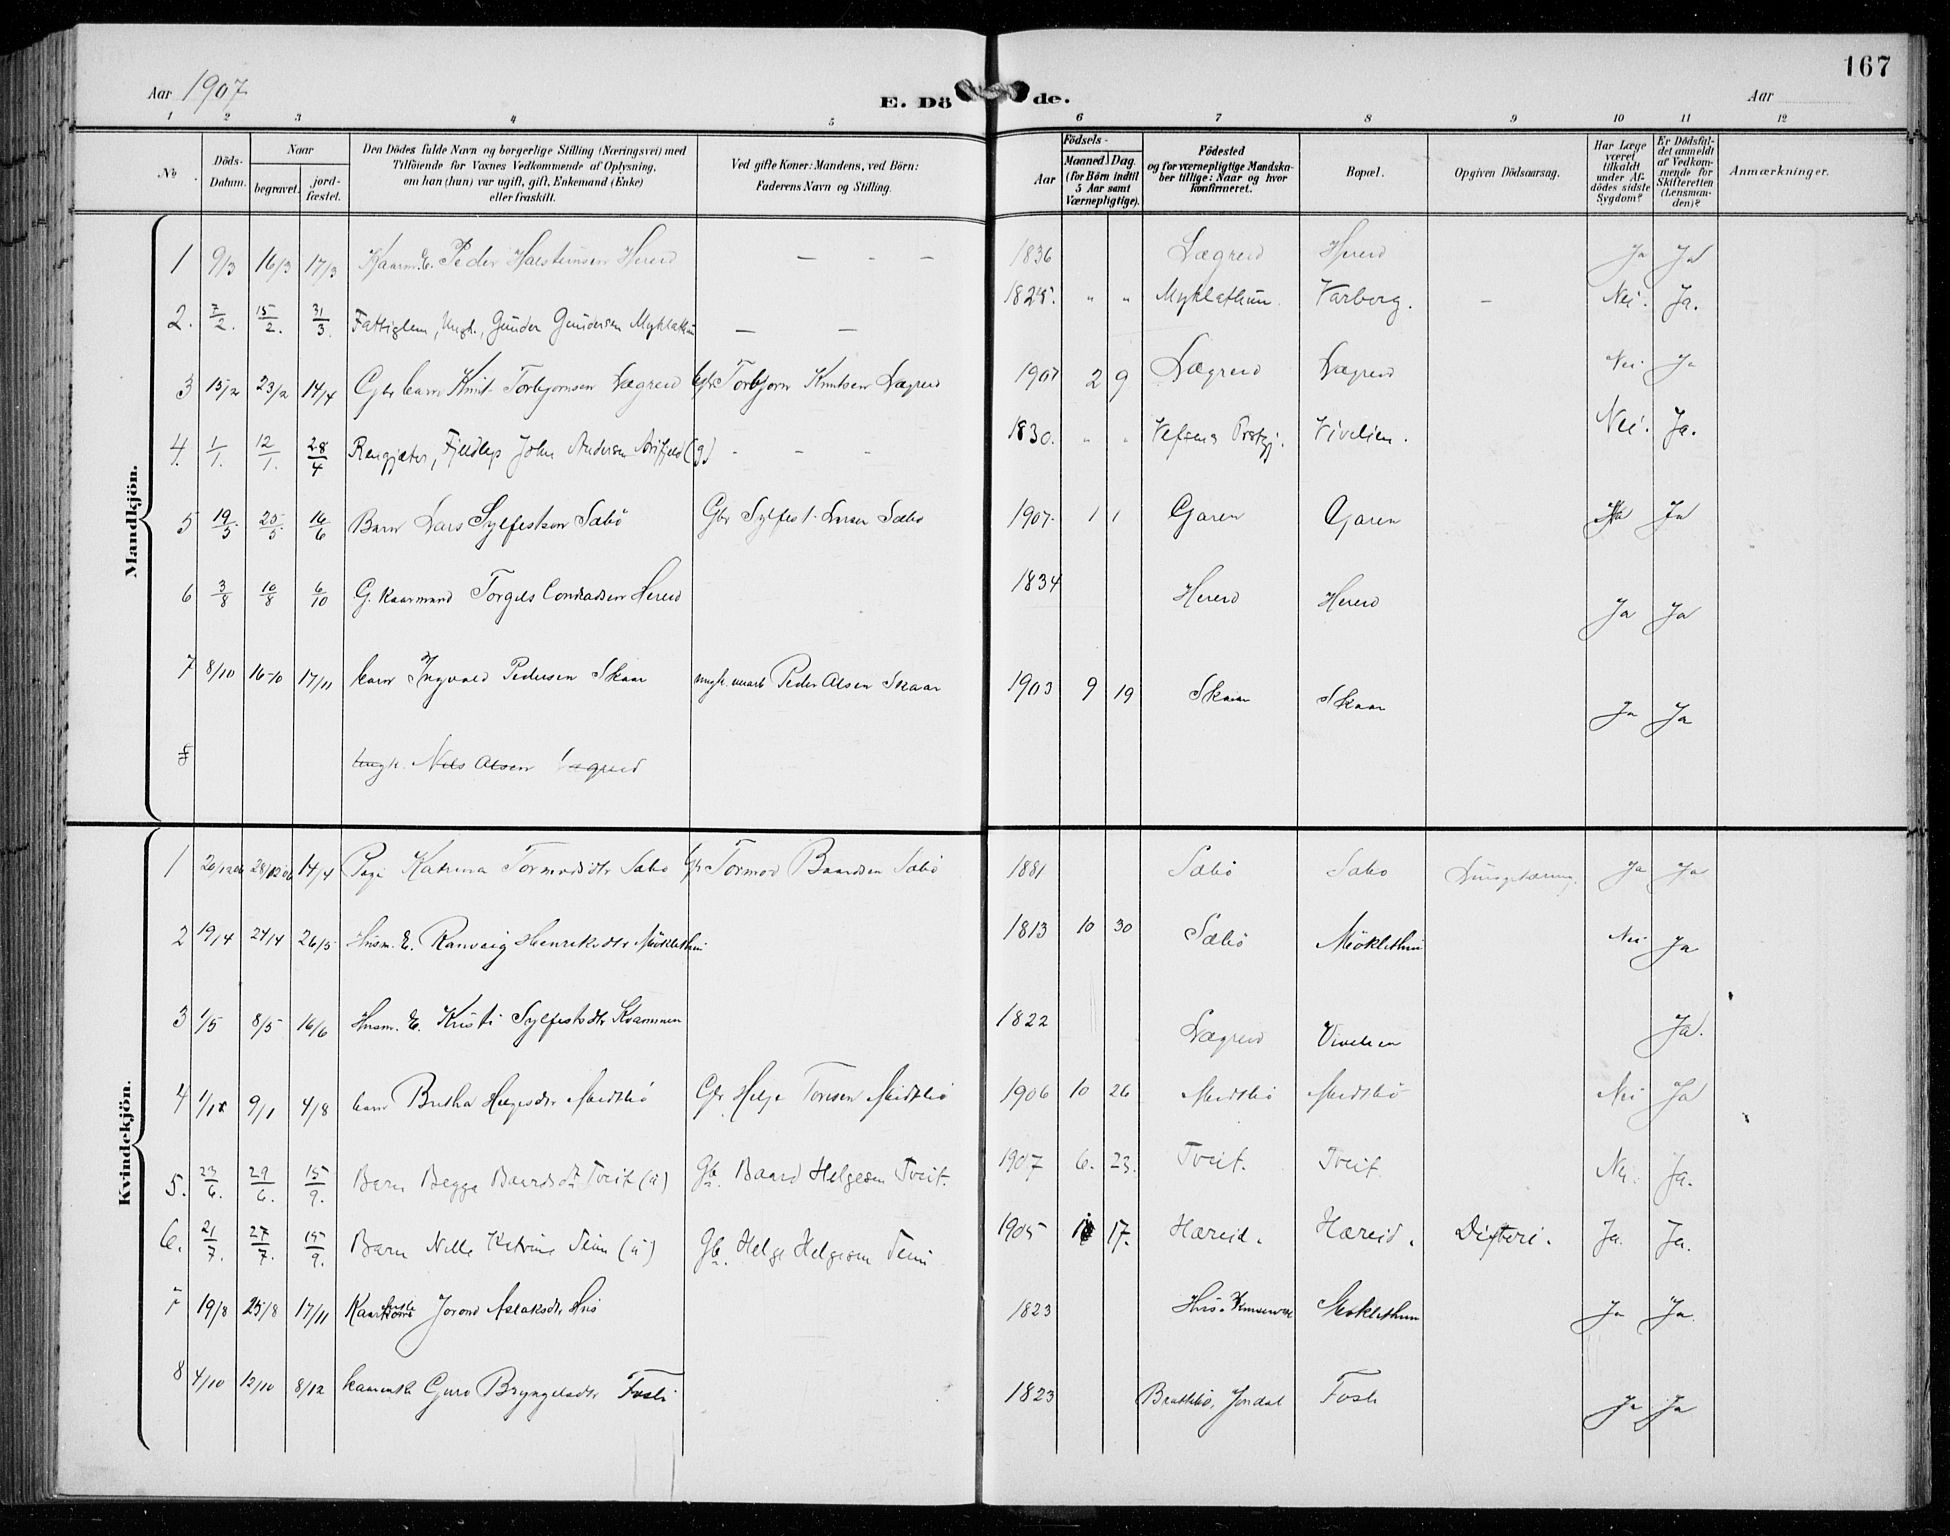 167
Aar 1907
E. Dö de.
Aar
1 2 3 4 5 6 7 8 9 10 11 12
No
Döds-Datum.
Naar
begravet.
jord-fæstet.
Den Dödes fulde Navn og borgerlige Stilling (Næringsvei) med
Tilföiende for Voxnes Vedkommende af Oplysning,
om han (hun) var ugift, gift, Enkemand (Enke)
eller fraskilt.
Ved gifte Koner: Mandens, ved Börn:
Faderens Navn og Stilling.
Födsels-
Aar
Maaned. Dag.
(for Börn indtil
5 Aar samt
Værnepligtige).
Födested
og for værnepligtige Mandska-
ber tillige: Naar og hvor
konfirmeret.
Bopæl.
Opgiven Dödsaarsag.
Har Læge
været
tilkaldt
under Af-
dödes sidste
Sygdom?
Er Dödsfal-
det anmeldt
af Vedkom-
mende for
Skifteretten
(Lensman-
den)?
Anmærkninger.
Mandkjön.
1 9/3 16/3 17/3 Kaarm. E. Peder Halsteinsen Hereid — — — 1836 Lægreid Hereid Ja Ja
2. 7/2. 15/2. 31/3. Fattiglem, Ungk., Gunder Gundersen Myklathun — — 1825. " " Myklathun. Varberg. — Nei. Ja.
3 15/2 23/2 14/4 Gbr barn Knut Torbjornsen Lægreid Gbr Torbjorn Knutsen Lægreid 1907 2 9 Lægreid Lægreid Nei Ja
4. 1/1. 12/1. 28/4 Rengjæter, Fjeldlap John Andersen (g) - - - 1830. " " Vefsens Prstgj. Vivelien. Nei. Ja.
5 19/5 25/5 16/6 Barn Lars Sylfestsen Sæbö Gbr Sylfest Larsen Sæbö 1907. 1 1 Garen Garen Ja Ja
6 3/8 10/8 6/10 G. Kaarmand Torgils Hereid 1834 Hereid Hereid Ja Ja
7 8/10 16/10 17/11 barn Ingvald Pedersen Skaar ungk. Peder Olsen Skaar 1903 9 19 Skaar Skaar Ja Ja
8 Ungk. Nils Olsen Lægreid
Kvindekjön.
1 20/12 06 28/12 06 14/4 Pige Katrina Tormodsdtr Sæbo Gbr Tormod Baardsen Sæbö 1881 Sæbö Sæbo Lungetæring. Ja Ja
2 19/4 24/4 26/5 Husm. E. Ranveig Henriksdtr Möklethun 1813 10 30 Sæbö Möklethun Nei Ja
3 1/5 8/5 16/6 Husm. E. Kristi Sylfestsdtr Kvammen 1822 Lægreid Vivelien Ja.
4 1/1 9/1 4/8 barn Britha Helgesdtr Meidtbö Gbr Helge Toresen Meidtbö 1906 10 26 Meidtbö Meidtbö Nei Ja
5. 23/6. 29/6. 15/9. Barn Begga Baardsdtr Tveit (u) Gb. Baard Helgesen Tveit. 1907 6. 23. Tveit. Tveit. Nei. Ja.
6. 21/7. 27/7. 15/9. Barn Nelle Katrine (u) Gb. Helge Helgesen 1905 17. Hæreid. Hæreid. Difteri. Ja. Ja.
7 19/8 25/8 17/11 Jorond Aslaksdtr Hus 1823 Möklethun Ja Ja.
8 4/10 12/10 8/12 Guro Bryngelsdtr Fosli 1823 Jondal Fosli Ja Ja